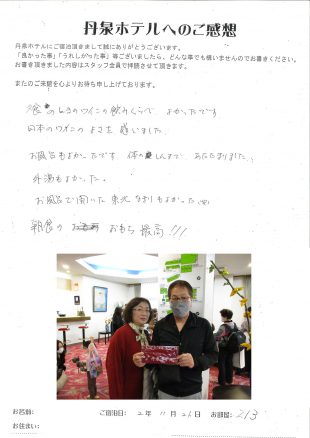 丹泉ホテルへのご感想
丹泉ホテルにご宿泊頂きまして誠にありがとうございます。
「良かった事」「うれしかった事」等ございましたら、どんな事でも構いませんのでお書きください。
お書き頂きました内容はスタッフ全員で拝読させて頂きます。
またのご来館を心よりお待ち申し上げております。
夕食のときのワインの飲みくらべ よかったです
日本のワインのよさを感じました
お風呂もよかったです 体の しんまで あたたまりました。
外湯もよかった。
お風呂で聞いた東北なまりもよかった
朝食の おもち 最高!!!
お名前:
ご宿泊日: 2年 11月 26日
お部屋: 213
お住まい: